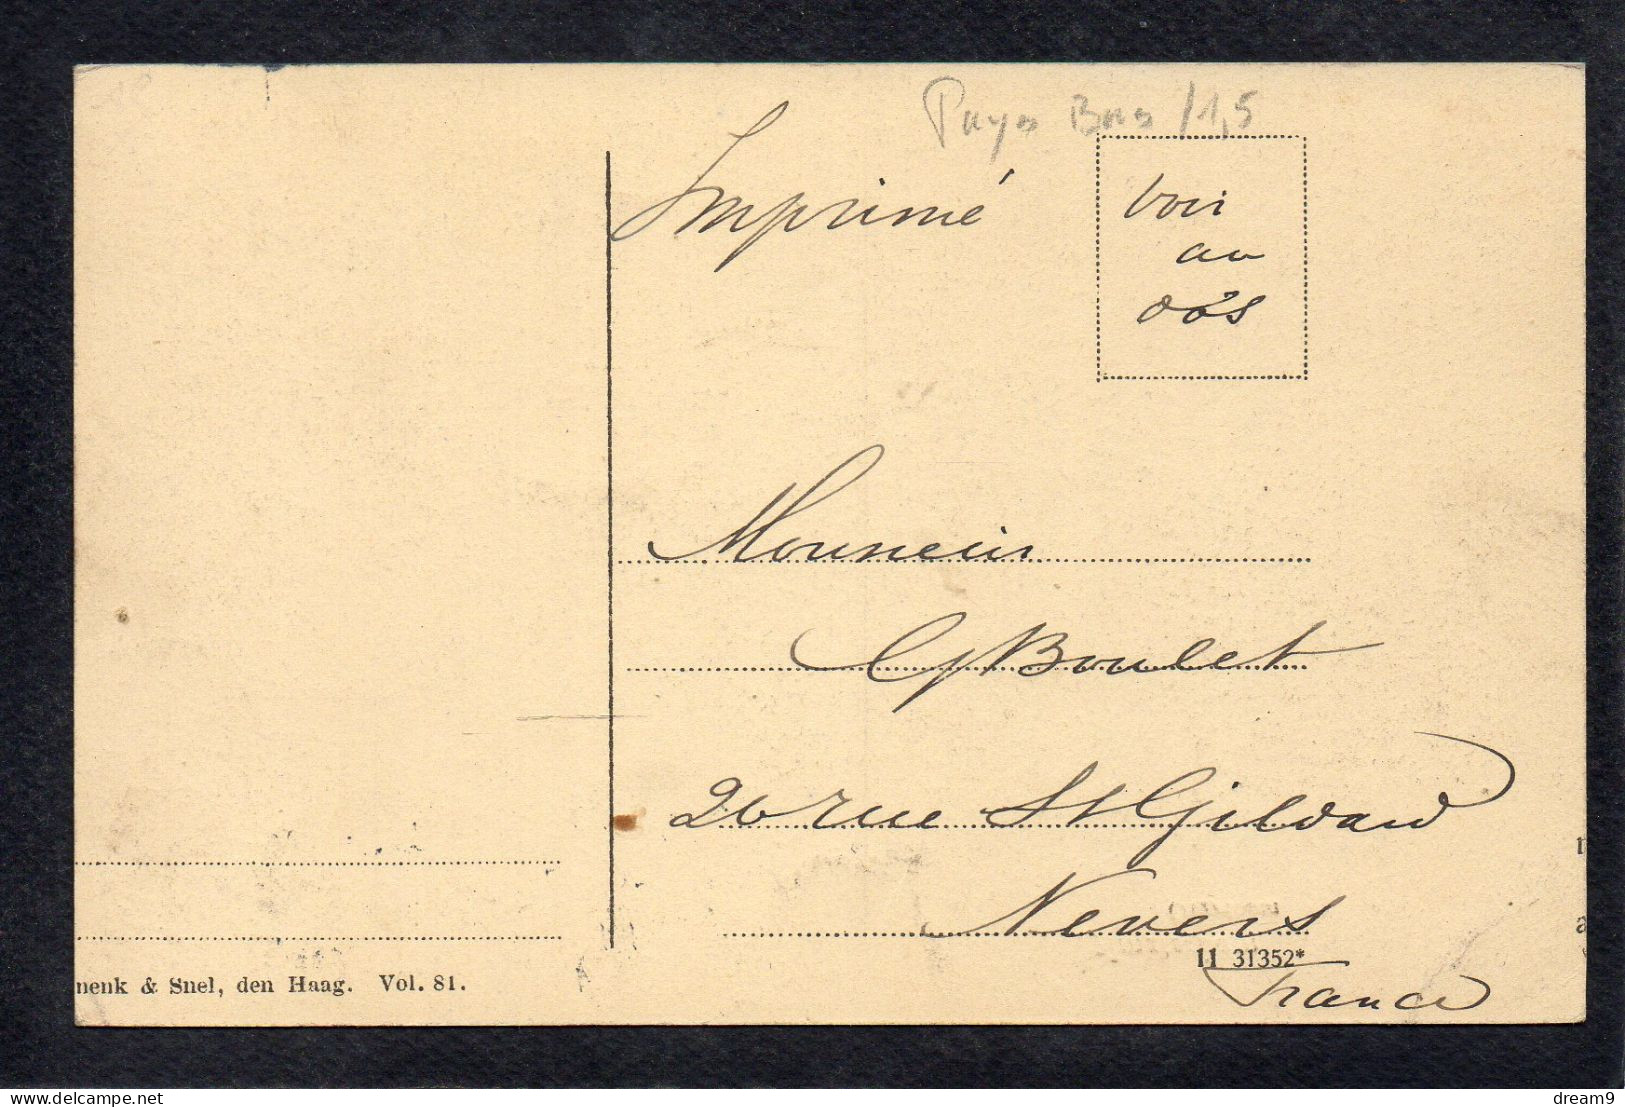 Pays Bas /1,5
Imprimé
Voir
au
dos
Monsieur
G Boulet
26 rue St Gildard
Nevers
11 31352*
France
nenk & Snel, den Haag. Vol. 81.
delcampe.net
dream9